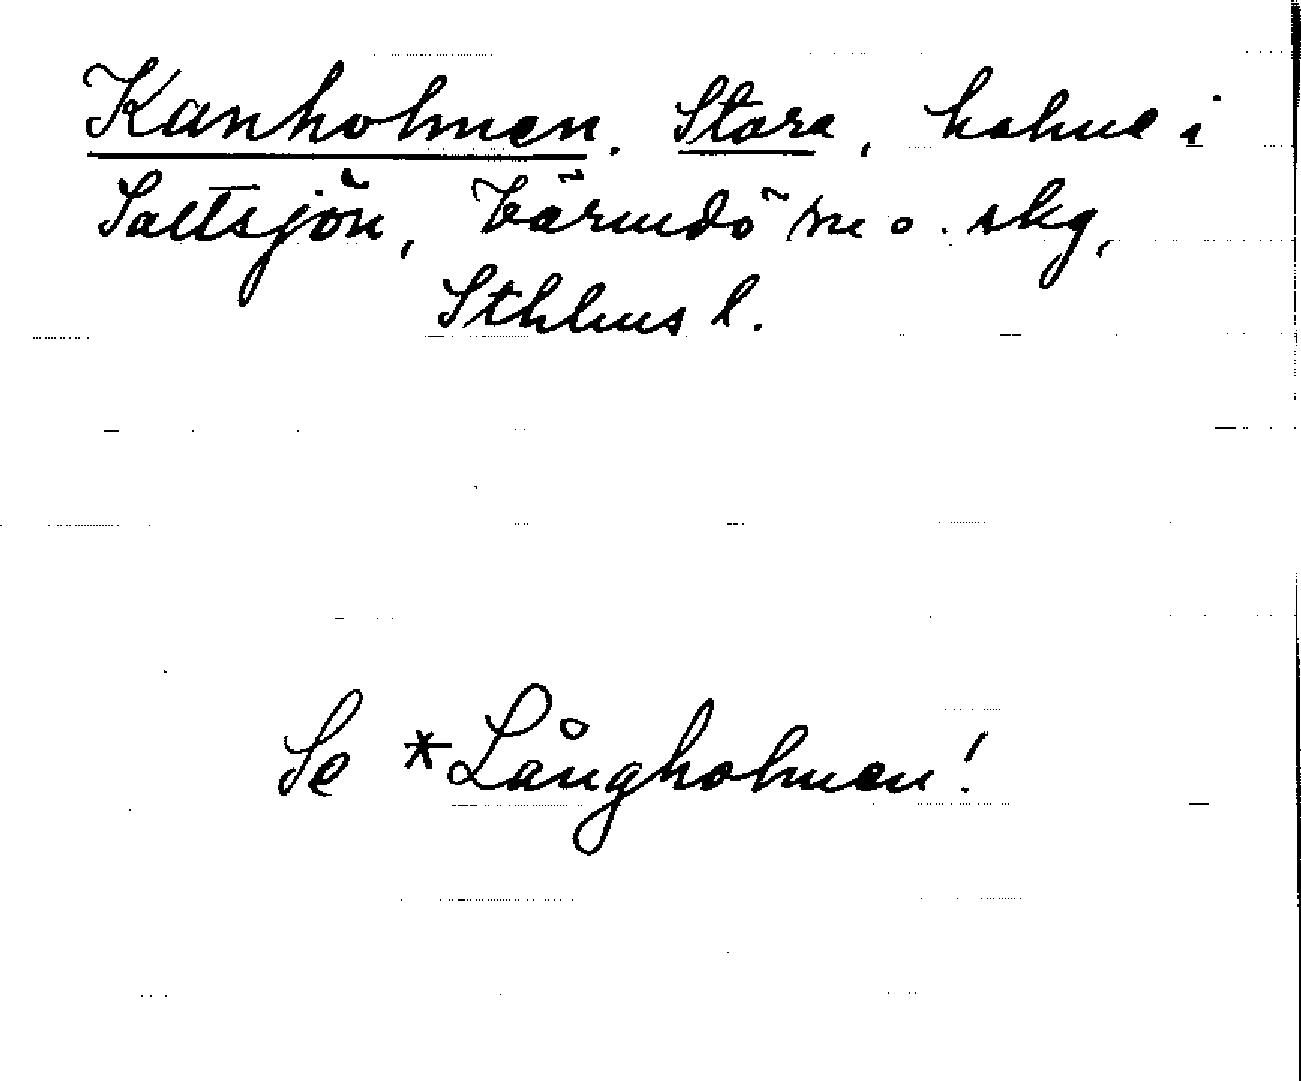 Kanholmen. Stora, holme i
Saltsjön, Värmdö sn o. skg,
Sthlms l.
Se *Långholmen!